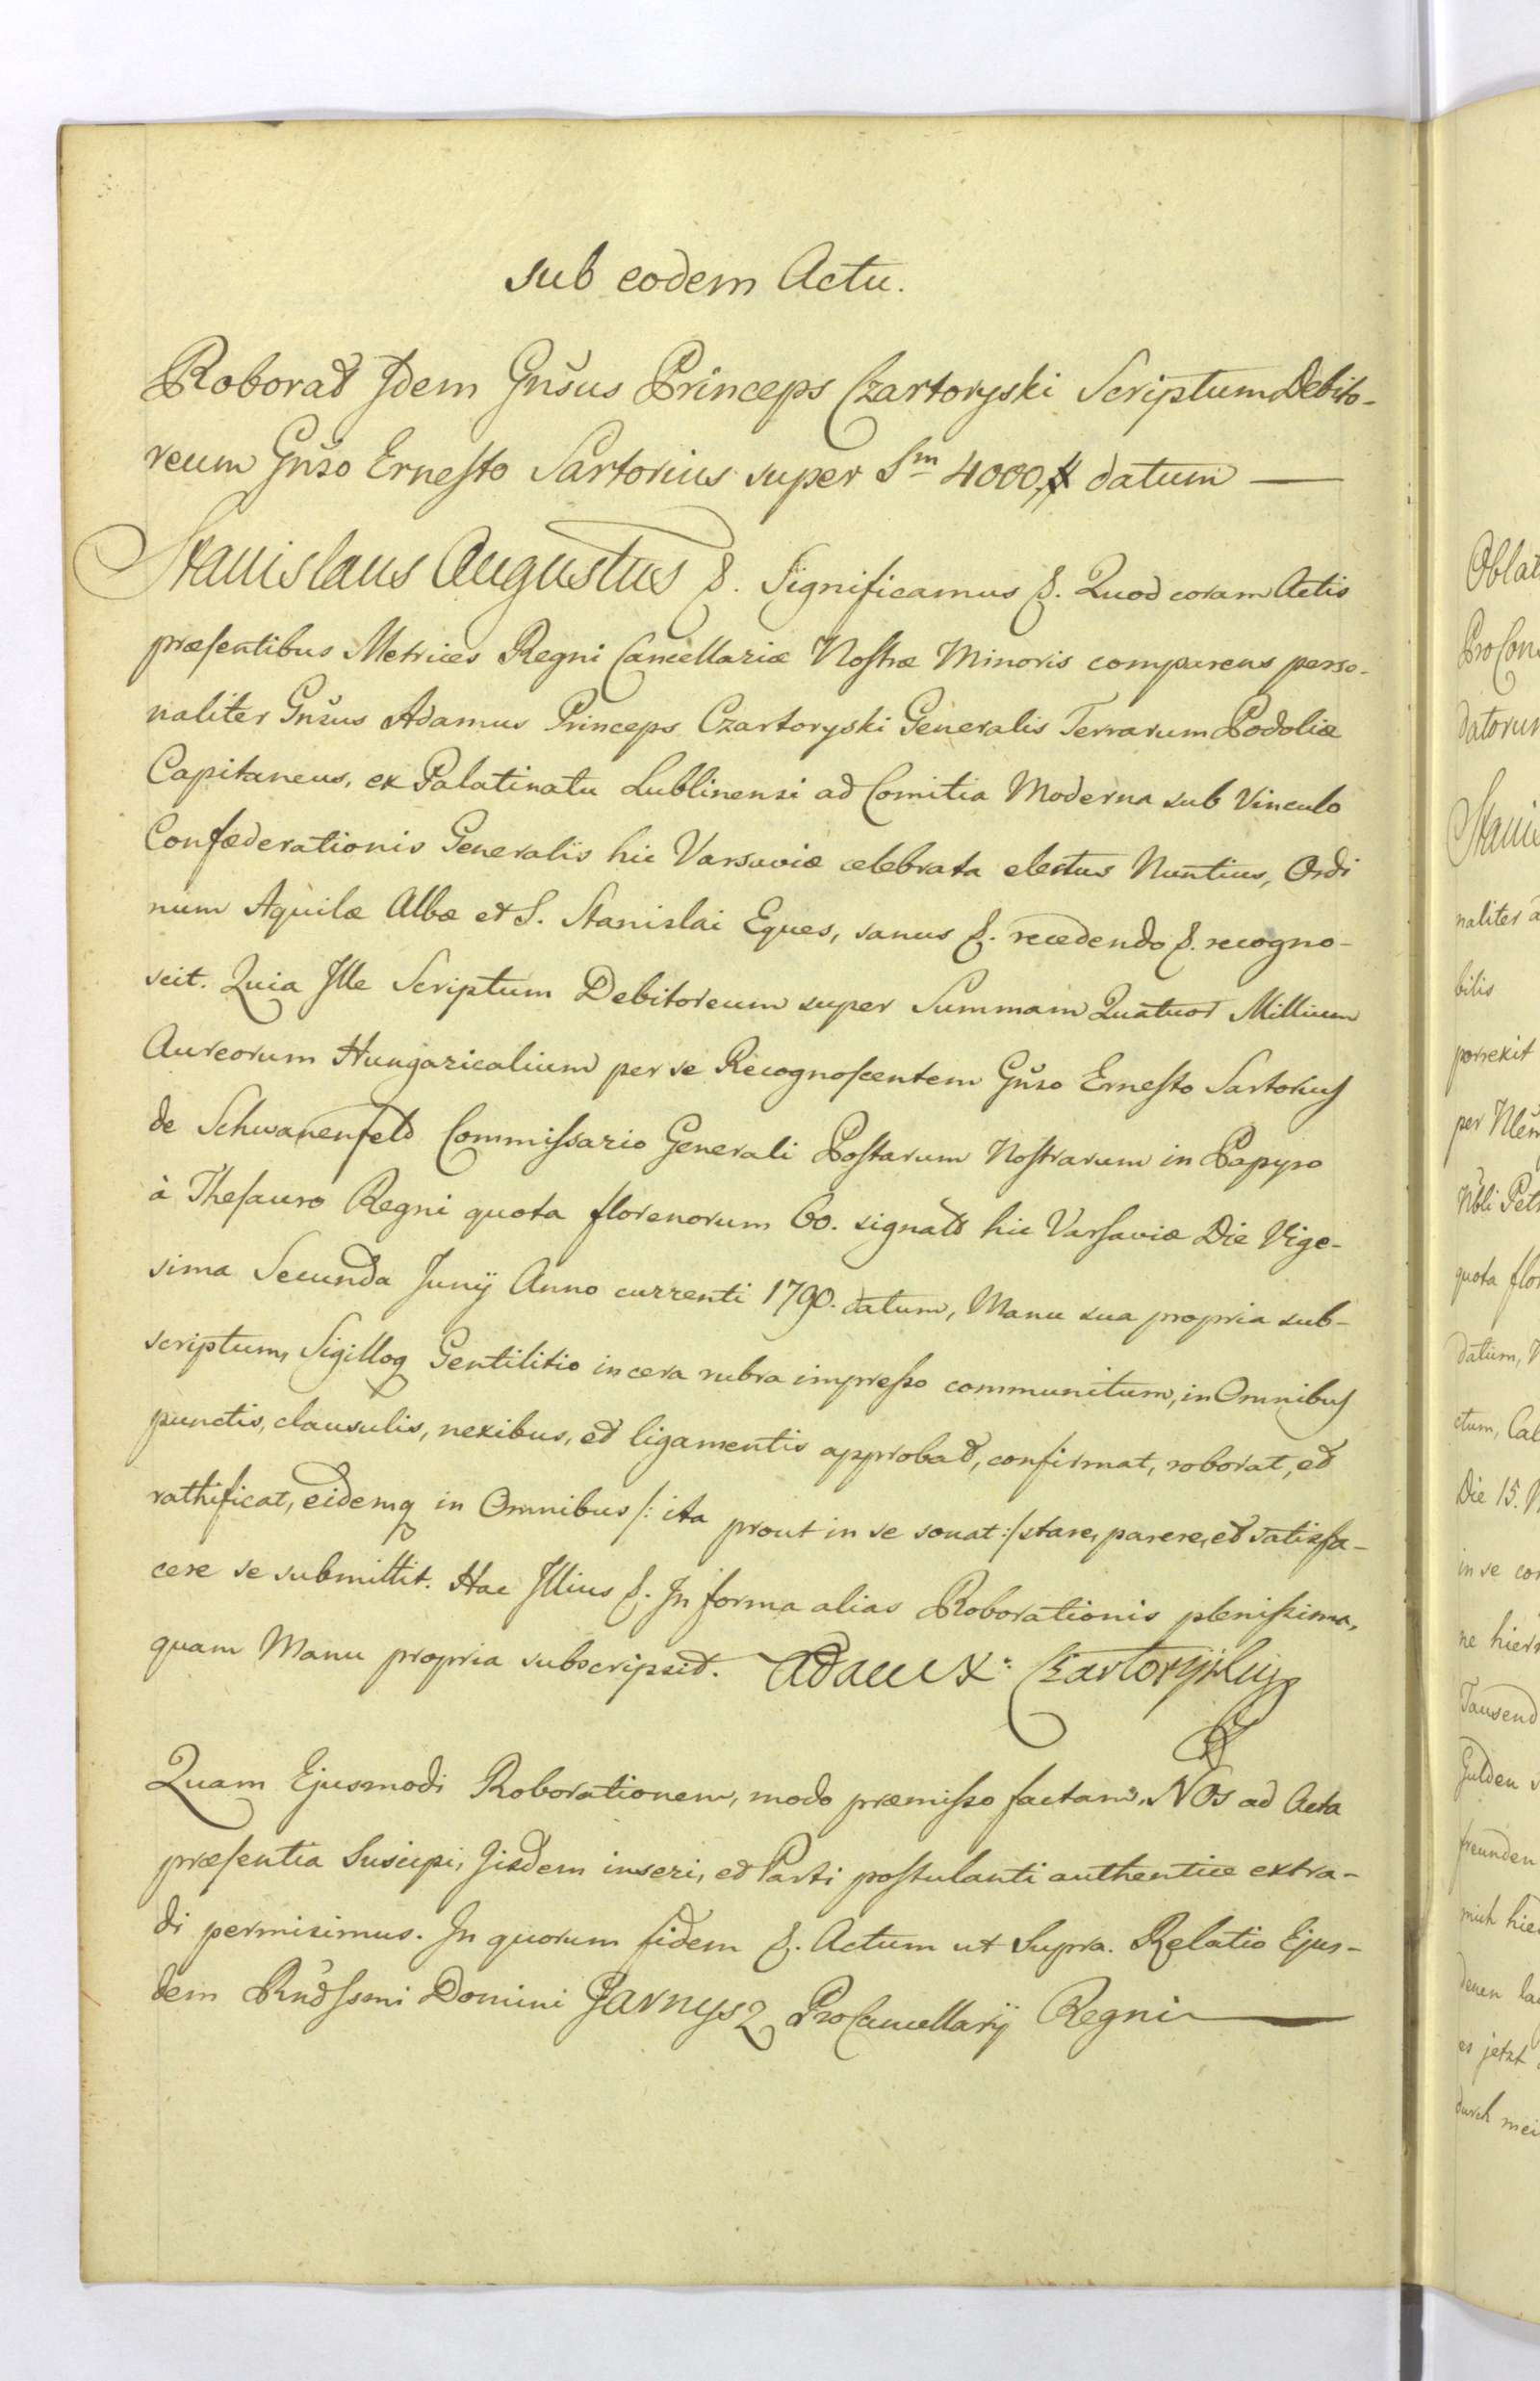 sub eodem Actu.
Roborat Idem Gnšus Princeps Czartoryski Scriptum Debito-
reum Gnšo Ernesto Sartorius super Sm 4000 datum —
Stanislaus Augustus &. Significamus &. Quod coram Actis
præsentibus Metrices Regni Cancellariæ Nostræ Minoris comparens perso-
naliter Gnšus Adamus Princeps Czartoryski Generalis Terrarum Podoliæ
Capitaneus, ex Palatinatu Lublinensi ad Comitia Moderna sub Vinculo
Confæderationis Generalis hic Varsaviæ celebrata electus Nuntius, Ordi
num Aquilæ Albæ et S. Stanislai Eques, sanus &. recedendo &. recogno-
scit. Quia Ille Scriptum Debitoreum super Summam Quatuor Millium
Aureorum Hungaricalium per se Recognoscentem Gnšo Ernesto Sartorius
de Schwanenfeld Commissario Generali Postarum Nostrarum in Papyro
à Thesauro Regni quota florenorum 60. signato hic Varsaviæ Die Vige-
sima Secunda Junij Anno currenti 1790. datum, Manu sua propria sub-
scriptum, Sigilloq Gentilitio in cera rubra impresso communitum, in Omnibus
punctis, clausulis, nexibus, et ligamentis approbat, confirmat, roborat, et
rathificat, eidemq in Omnibus /: ita prout in se sonat :/ stare, parere, et satisfa-
cere se submittit. Hac Illius &. In forma alias Roborationis plenissima,
quam Manu propria subscripsit. Adam X: Czartoryski
Quam Ejusmodi Roborationem, modo præmisso factam, NOs ad Acta
præsentia Suscipi, Iisdem inseri, et Parti postulanti authentice extra-
di permisimus. In quorum fidem &. Actum ut Supra. Relatio Ejus-
dem Rnđssmi Domini Garnysz ProCancellarij Regni —
Oblat
ProCon
datorum
Stanis
naliter
bilis
porrexit
per
Nbli Pet
quota flor
datum,
ctum, Cal
Die 15.
in se con
ne hier
Tausend
Gulden
freunden
mich hie
denen la
es jetzt
durch mei